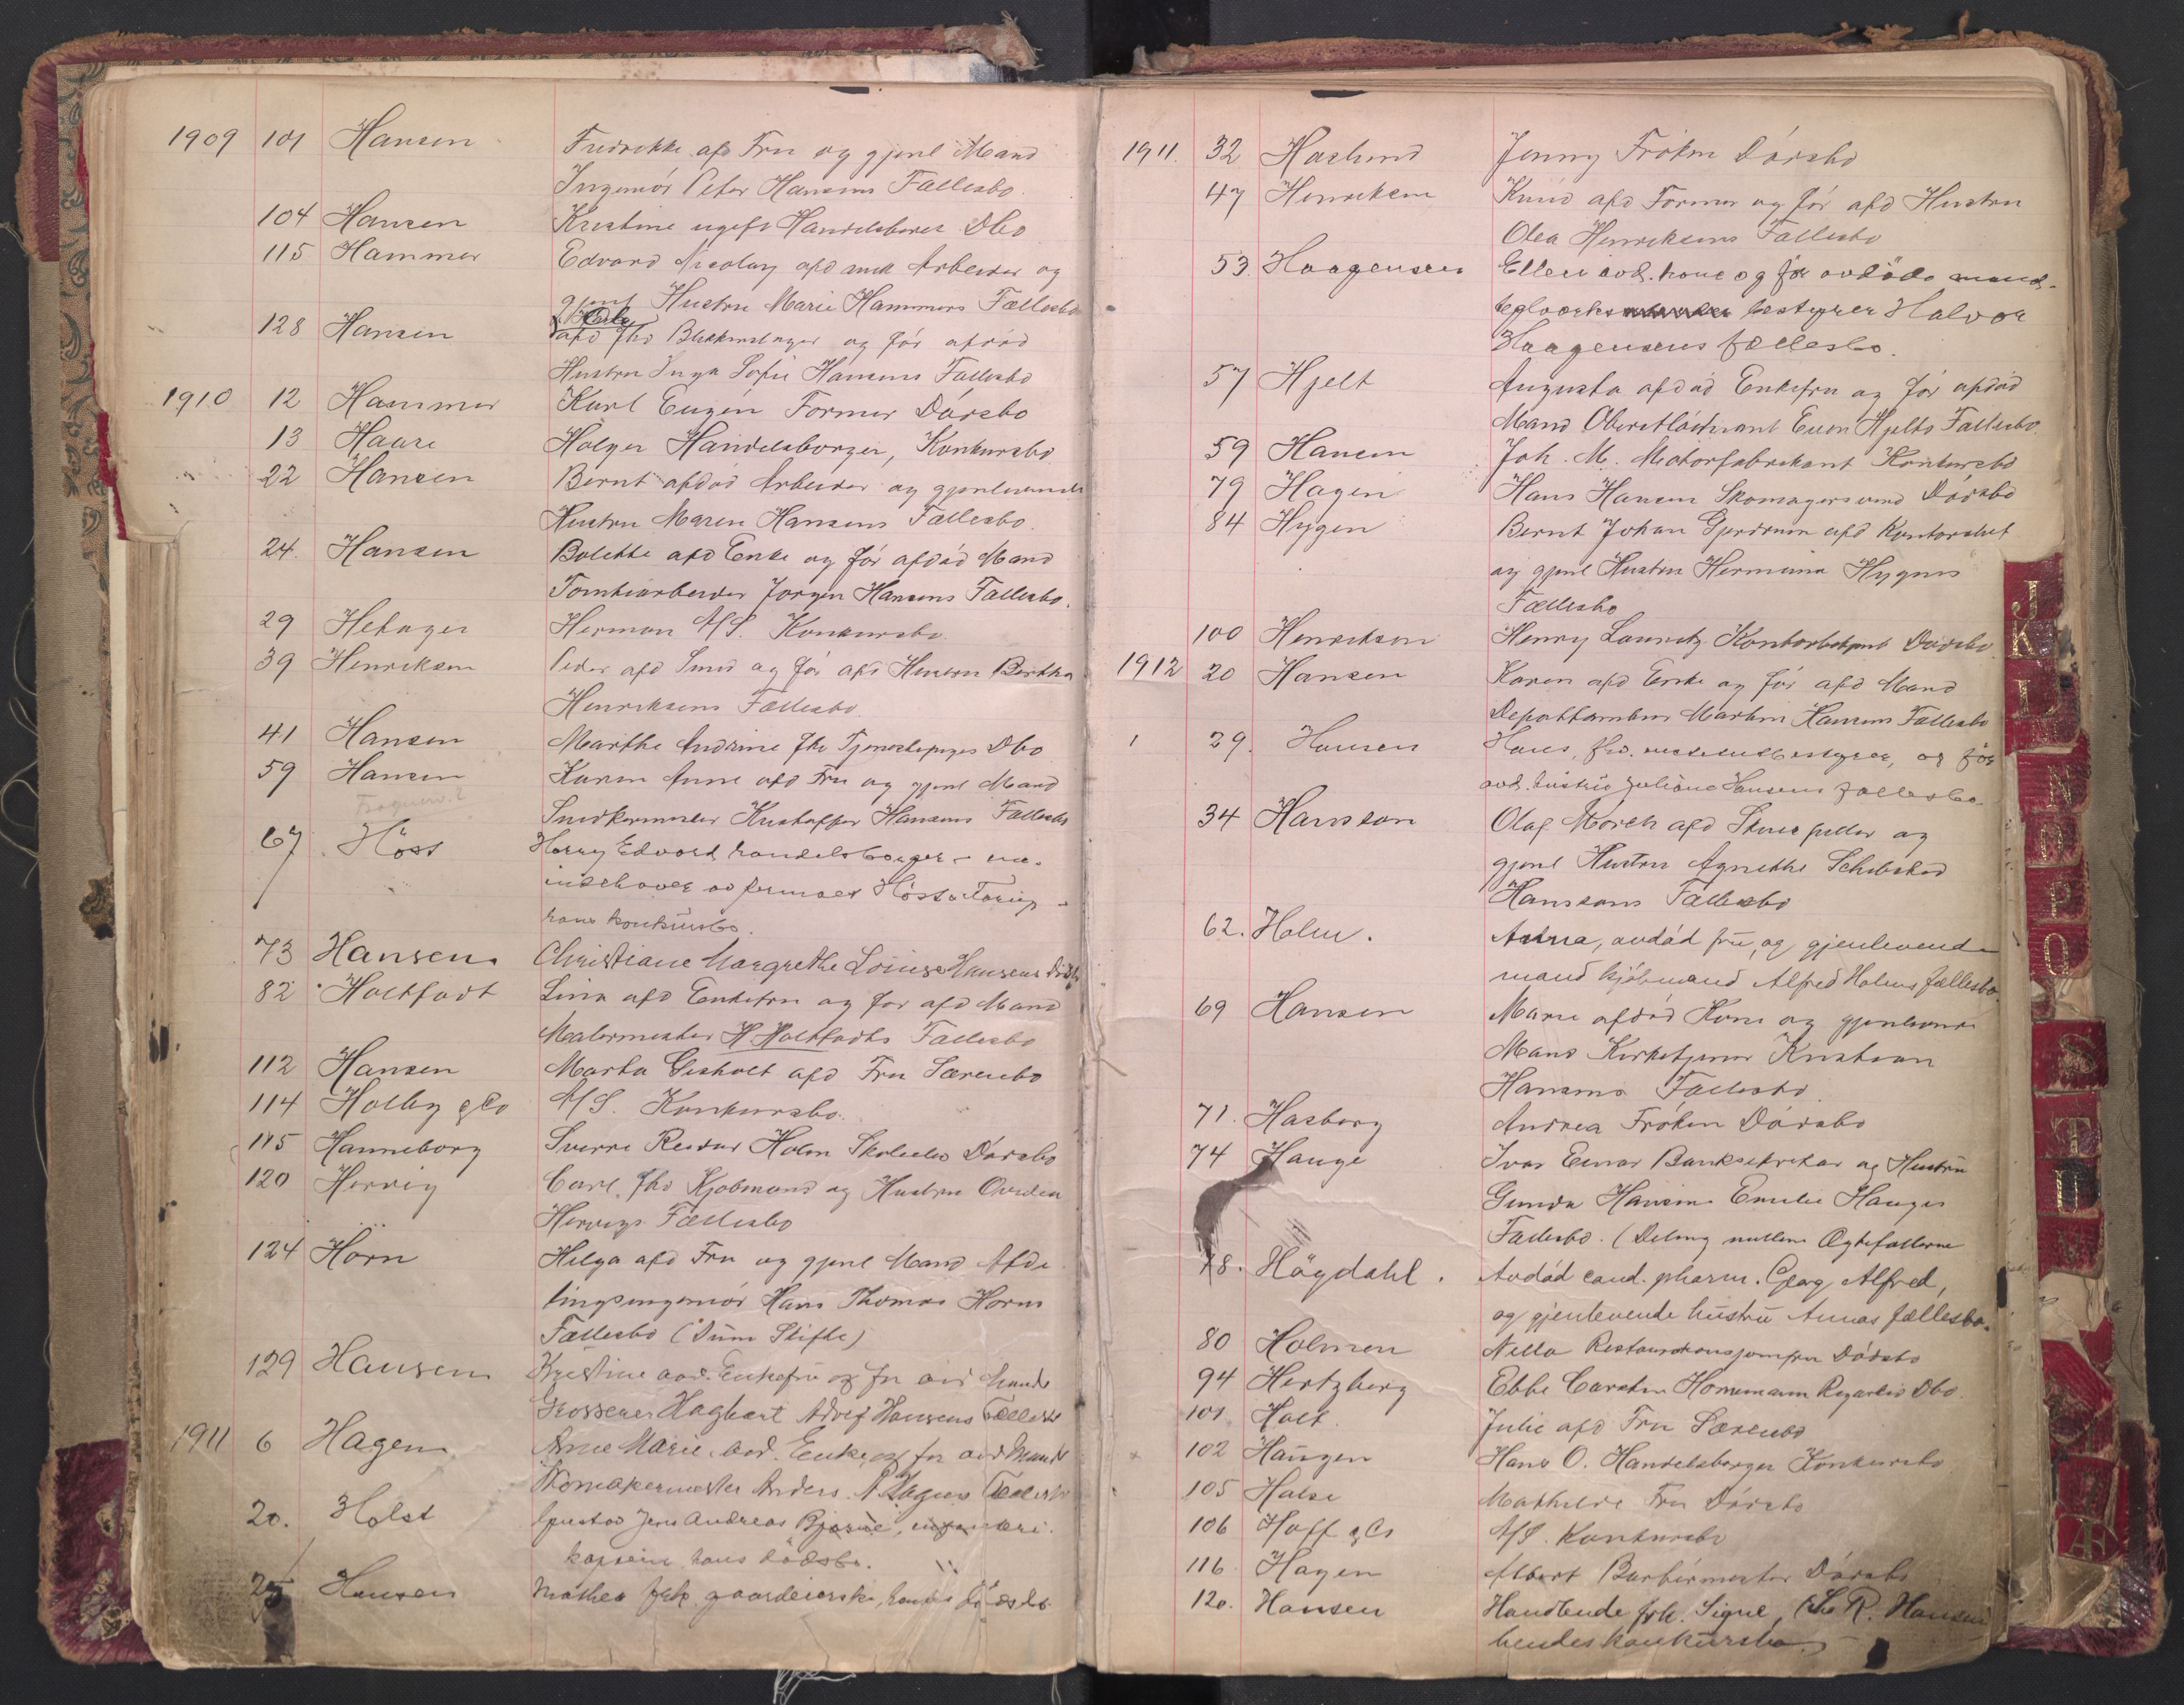 1909 101 Hansen Fredrikke afd Fru og gjenl Mand
Ingeniør Peter Hansens Fællesbo.
104 Hansen Kristine ugift Handelsborger Dbo
115 Hammer Edvard Nicolay afd Arbeider og
gjenl Hustru Marie Hammers Fællesbo
128 Hansen afd fhv Blikkenslager og før afdød
Hustru Inga Sofie Hansens Fællesbo
1910 12 Hammer Karl Eugen Former Dødsbo
13 Haare Holger Handelsborger, Konkursbo
22 Hansen Bernt afdød Arbeider og gjenlevende
Hustru Maren Hansens Fællesbo.
24. Hansen Bolette afd Enke og før afdød Mand
Tomtearbeider Jørgen Hansens Fællesbo.
29 Hetager Herman A/S. Konkursbo.
39 Henriksen Peder afd Smed og før afd Hustru Berthe
Henriksens Fællesbo.
41 Hansen Marthe Andrine fhv Tjenestepiges Dbo
59 Hansen Karen Anne afd Fru og gjenl Mand
Snedkermester Kristoffer Hansens Fællesbo
67 Höst Harry Edvard handelsborger
indehaver av firmaet
hans konkursbo.
73 Hansen Christiane Margrethe Louise Hansens Dødsbo
82 Holtfodt Lina afd Enkefru og før afd Mand
Malermester H. Holtfodts Fællesbo
112 Hansen Marta Gisholt afd Fru Særeiebo
114 Holby & Co A/S. Konkursbo.
115 Hanneborg Sverre Reidar Holm Skoleelev Dødsbo
120 Hervig Carl, fhv Kjøbmand og Hustru
Hervigs Fællesbo
124 Horn Helga afd Fru og gjenl Mand Afde
lingsingeniør Hans Thomas Horns
Fællesbo
129 Hansen Kristine avd. Enkefru og før avd Mands
Grosserer Hagbart Adolf Hansens Fællesbo
1911 6 Hagen Anne Marie avd. Enke, og før avd Mands
Skomakermester Anders Hagens Fællesbo
20. Holst Gustav Jens Andreas Bjarne, infanteri.
kaptein, hans dødsbo.
25 Hansen Mathea frk. gaardeierske, hendes dødsbo
1911. 32 Haslund Jenny Frøken Dødsbo
47 Henriksen Knud afd Former og før afd Hustru
Olea Henriksens Fællesbo
53. Haagensen Ellen avd. kone og før avdøde mand
teglverks bestyrer Halvor
Haagensens fællesbo.
57 Hjelt Augusta afdød Enkefru og før afdød
Mand Oberstløitnant Hjelts Fællesbo.
59 Hansen Joh. M. Motorfabrikant Konkursbo
79 Hagen Hans Hansen Skomagersvend Dødsbo
84 Hygen Bernt Johan Gjerdrum afd Kontorchef
og gjenl Hustru Hermina Hygens
Fællesbo
100 Henriksen Henry Lauritz Kontorbetjent Dødsbo
1912 20 Hansen Karen afd Enke og før afd Mand
Depottambur Martin Hansens Fællesbo
29. Hansen Hans, fhv. og før
avd. hustru Juliane Hansens fællesbo.
34 Hansson Olaf Mørch afd Skuespiller og
gjenl Hustru Agnethe Schibsted
Hanssons Fællesbo
62. Holm. Anna, avdød fru, og gjenlevende
mand kjøbmand Alfred Holms fællesbo.
69 Hansen Marie afdød Kone og gjenlevende
Mand Kirketjener Kristian
Hansens Fællesbo.
71. Hasberg Andrea Frøken Dødsbo
74 Hauge Ivar Einar Banksekretær og Hustru
Gunda Hansine Emilie Hauges
Fællesbo. (Deling mellem Ægtefællerne
78. Högdahl. Avdød cand. pharm. Georg Alfred,
og gjenlevende hustru Annas fællesbo.
80 Holmen Nella Restaurationsjomfru Dødsbo
94 Hertzberg Ebbe Carsten Hornemann Rigsarkiv Dbo.
101 Holt. Julie afd Fru Særeiebo
102 Haugen Hans O. Handelsborger Konkursbo
105 Halse Mathilde Fru Dødsbo
106 Hoff & Co A/S. Konkursbo
116. Hagen Albert Barbermester Dødsbo
120. Hansen Handlende frk. Signe, R. Hansen
hendes konkursbo.
J
K
L
N
P
O
S
T
U